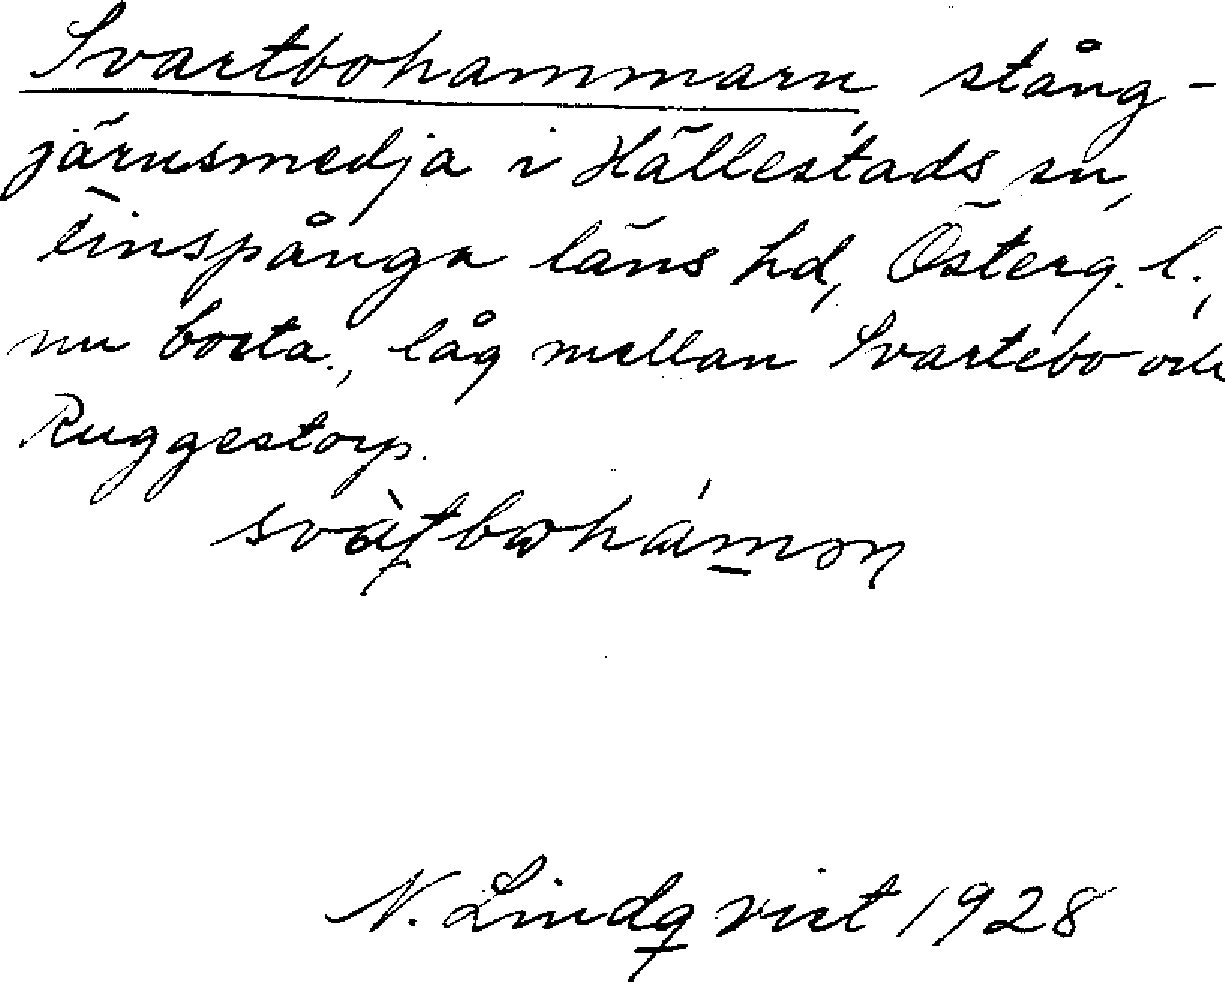 Svartbohammarn, stång-
järnsmedja i Hällestads sn,
Finspånga läns hd, Österg. l.,
nu borta, låg mellan Svartebo och
Ruggestorp.
N. Lindqvist 1928